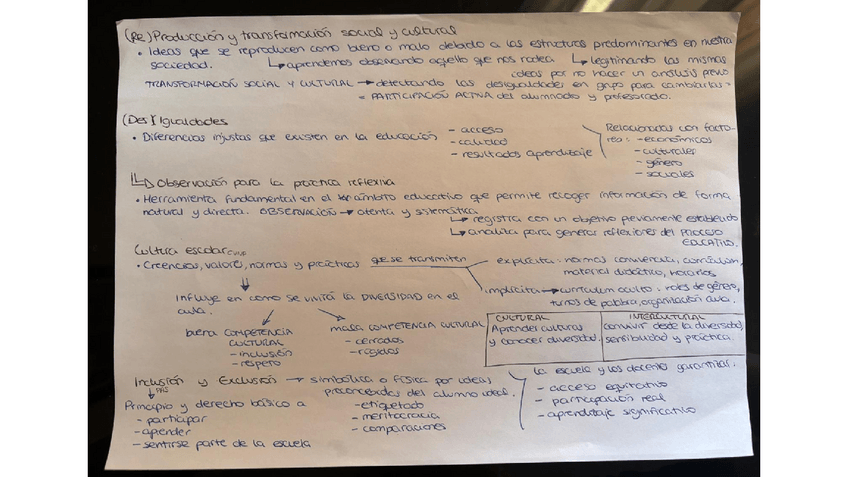 (Re) Producción y transformación social y cultural
• Ideas que se reproducen como bueno o malo debido a las estructuras predominantes en nuestra
sociedad. ↳ aprendemos observando aquello que nos rodea ↳ legitimando las mismas
ideas por no hacer un análisis previo
TRANSFORMACIÓN SOCIAL Y CULTURAL → detectando las desigualdades en grupo para cambiarlas =
= PARTICIPACIÓN ACTIVA del alumnado y profesorado.
(Des) Igualdades
• Diferencias injustas que existen en la educación
- acceso
- calidad
- resultados aprendizaje
Relacionadas con facto-
res: - económicos
- culturales
- género
- sociales
↳ Observación para la práctica reflexiva
• Herramienta fundamental en el ámbito educativo que permite recoger información de forma
natural y directa. OBSERVACIÓN → atenta y sistemática
↳ registra con un objetivo previamente establecido
↳ analiza para generar reflexiones del PROCESO
EDUCATIVO.
Cultura escolar
• Creencias, valores, normas y prácticas que se transmiten
explícita: normas convivencia, currículum,
material didáctico, horarios
implícita → currículum oculto: roles de género,
turnos de palabra, organización aula.
Influye en como se vivirá la DIVERSIDAD en el
aula.
buena COMPETENCIA
CULTURAL
- inclusión
- respeto
mala COMPETENCIA CULTURAL
- cerrados
- rígidos
CULTURAL
Aprender culturas
y conocer diversidad.
INTERCULTURAL
convivir desde la diversidad,
sensibilidad y práctica.
Inclusión y Exclusión → simbólica o física por ideas
preconcebidas del alumno ideal.
- etiquetado
- meritocracia
- comparaciones
Principio y derecho básico a
- participar
- aprender
- sentirse parte de la escuela
La escuela y los docentes garantizar.
- acceso equitativo
- participación real
- aprendizaje significativo